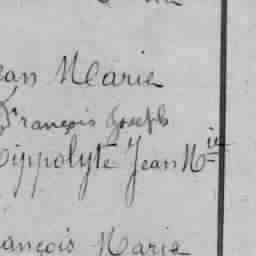 ean Marie
François Joseph
Hippolyte Jean Mie
ançois Marie